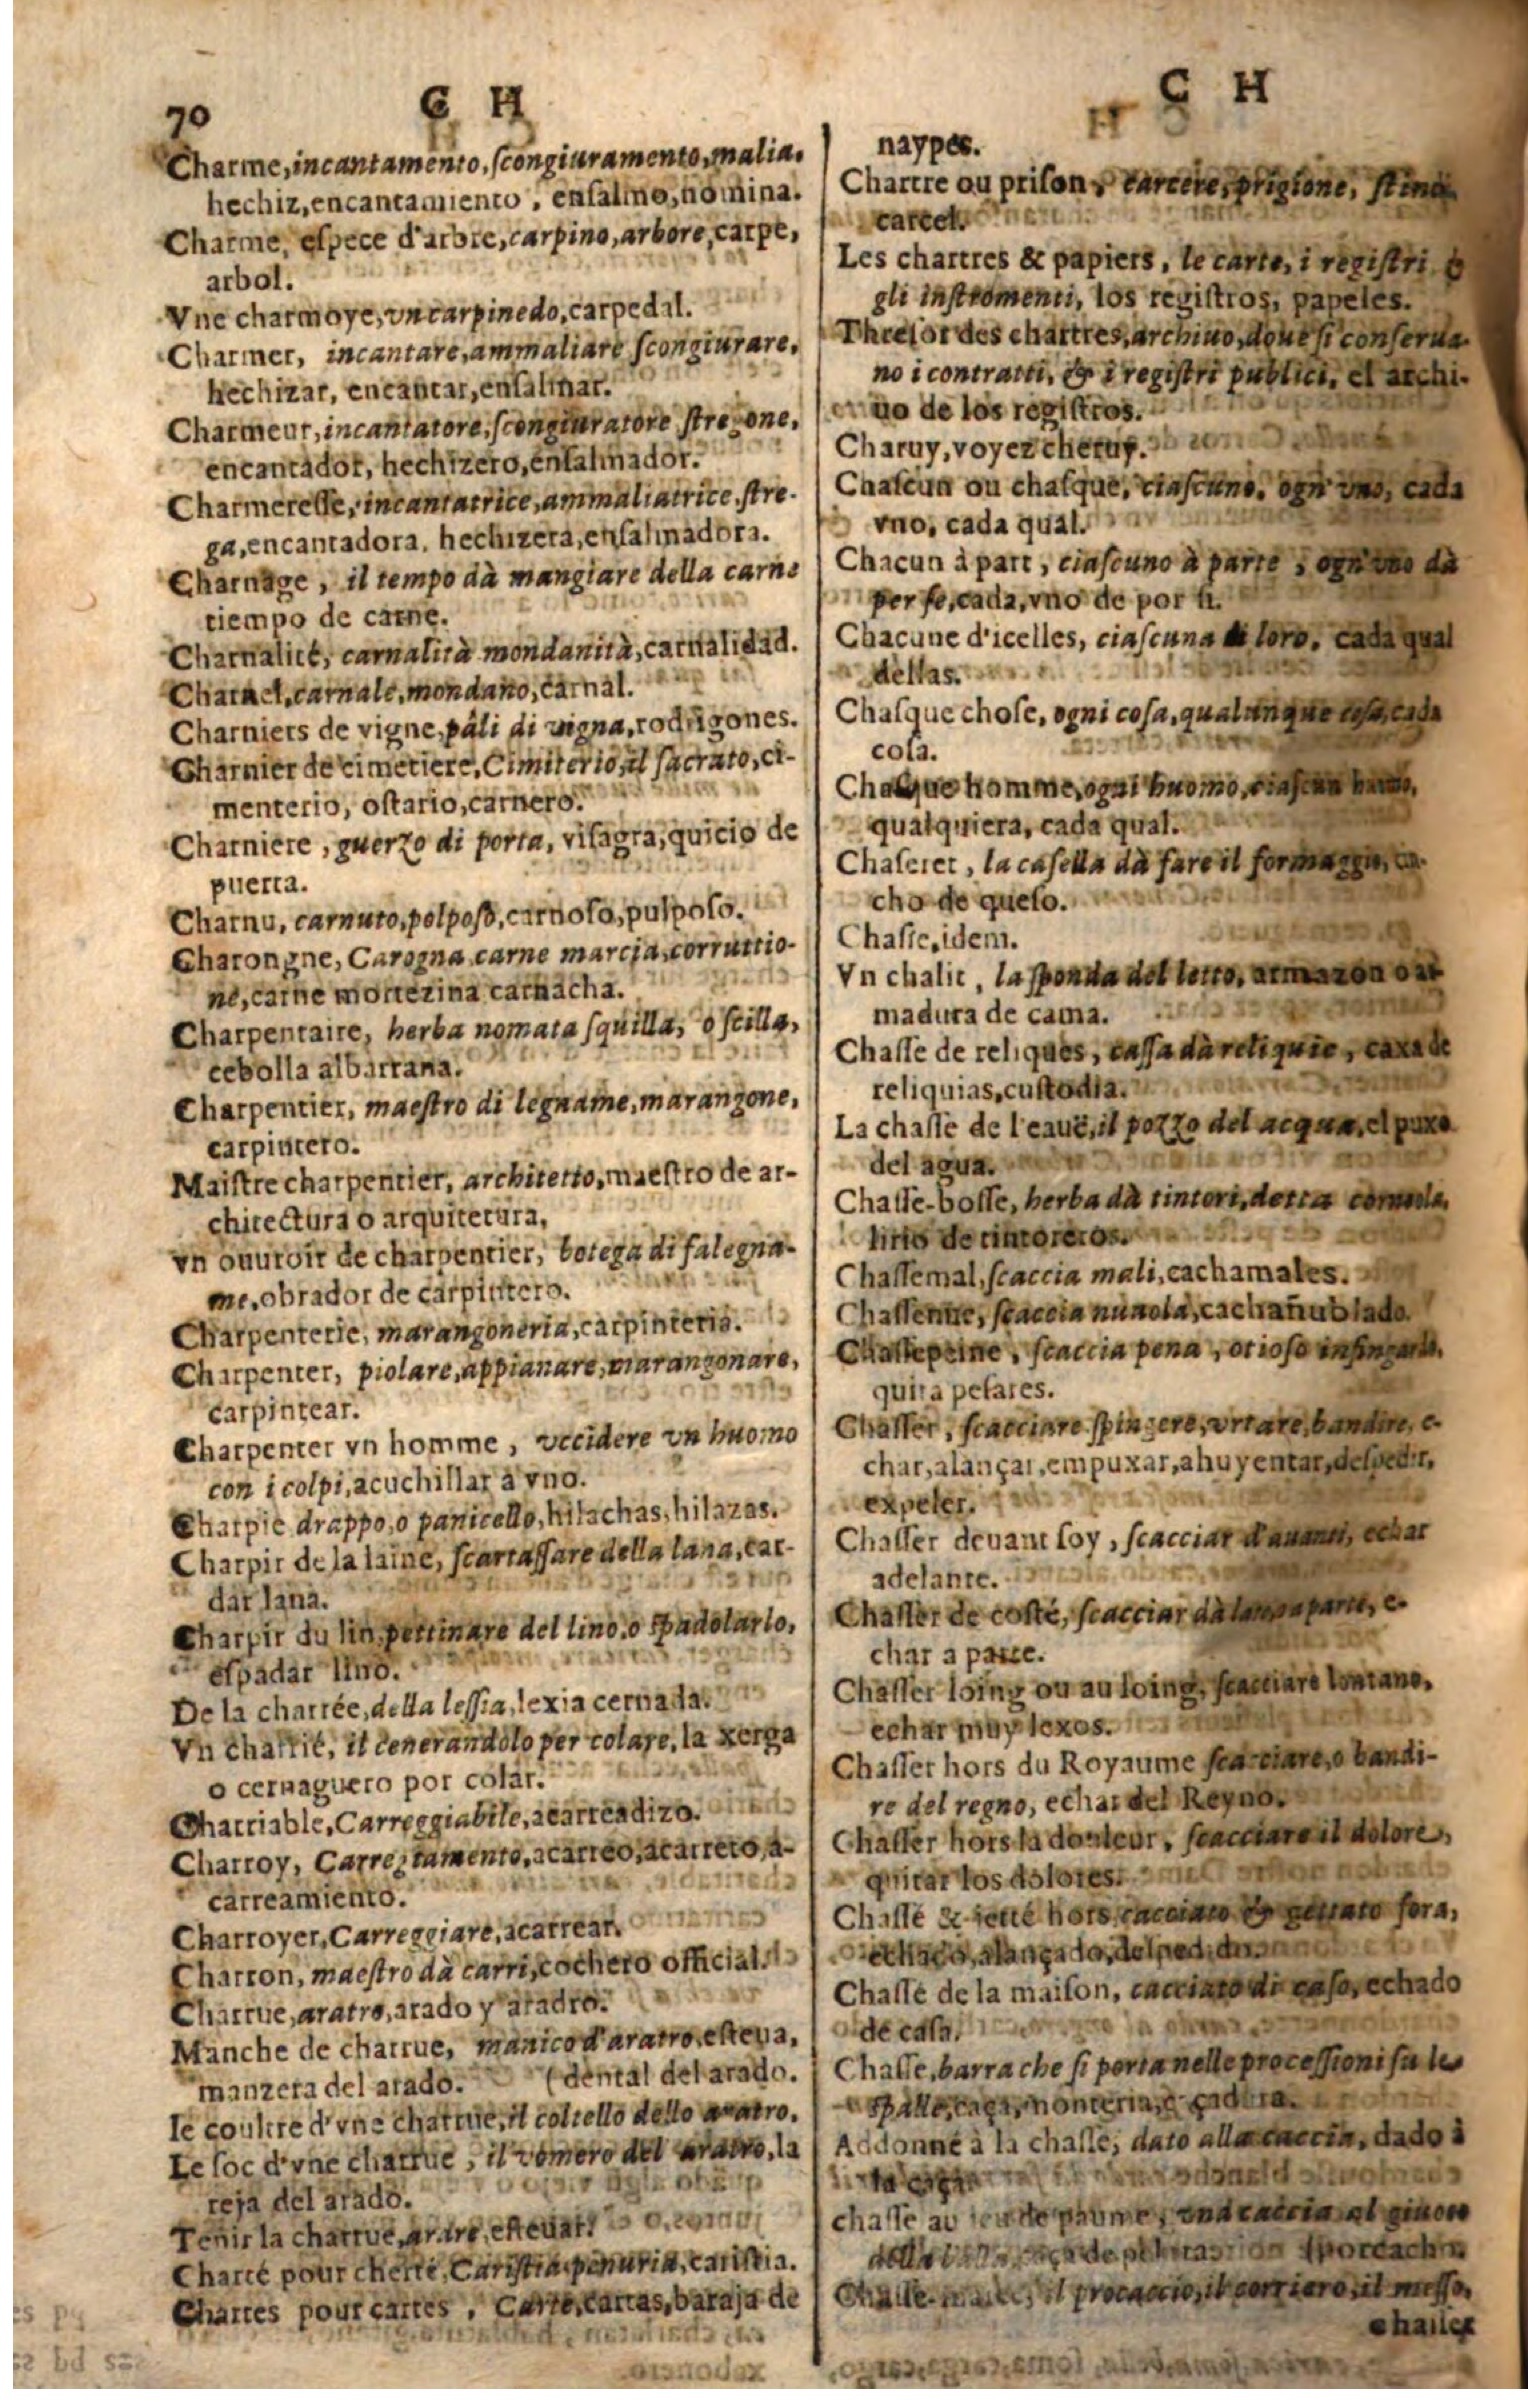 70
C H
C H
Charme, incantamento, ſcongiuramento, malia,
hechiz, encantamiento, enſalmo, nomina.
Charme, eſpece d'arbre, carpino, arbore, carpe,
arbol.
Vne charmoye, vn carpinedo, carpedal.
Charmer, incantare, ammaliare ſcongiurare,
hechizar, encantar, enſalmar.
Charmeur, incantatore, ſcongiuratore ſtregone,
encantador, hechizero, enſalmador.
Charmereſſe, incantatrice, ammaliatrice, ſtre-
ga, encantadora, hechizera, enſalmadora.
Charnage, il tempo dà mangiare della carne
tiempo de carne.
Charnalité, carnalità mondanità, carnalidad.
Charnel, carnale, mondano, carnal.
Charniers de vigne, pâli di vigna, rodrigones.
Charnier de cimetiere, Cimiterio, il ſacrato, ci-
menterio, oſtario, carnero.
Charniere, guerzo di porta, viſagra, quicio de
puerta.
Charnu, carnuto, polpoſo, carnoſo, pulpoſo.
Charongne, Carogna carne marcia, corruttio-
ne, carne mortezina carnacha.
Charpentaire, herba nomata ſquilla, o ſcilla,
cebolla albarrana.
Charpentier, maeſtro di legname, marangone,
carpintero.
Maiſtre charpentier, architetto, maeſtro de ar-
chitectura o arquitetura,
vn ouuroir de charpentier, botega di falegna-
me, obrador de carpintero.
Charpenterie, marangoneria, carpinteria.
Charpenter, piolare, appianare, marangonare,
carpintear.
Charpenter vn homme, vccidere vn huomo
con i colpi, acuchillar a vno.
Charpie drappo, o panicello, hilachas, hilazas.
Charpir de la laine, ſcartaſſare della lana, car-
dar lana.
Charpir du lin, pettinare del lino, o ſpadolarlo,
eſpadar lino.
De la charrée, della leſſia, lexia cernada.
Vn charrié, il cenerandolo per colare, la xerga
o cernaguero por colar.
Charriable, Carreggiabile, acarreadizo.
Charroy, Carregiamento, acarreo, acarreto, a-
carreamiento.
Charroyer, Carreggiare, acarrear.
Charron, maeſtro dà carri, cochero official.
Charrue, aratro, arado y aradro.
Manche de charrue, manico d'aratro, eſteua,
manzera del arado. (dental del arado.
le coultre d'vne charrue, il coltello dello aratro,
Le ſoc d'vne charrue, il vomero del aratro, la
reja del arado.
Tenir la charrue, arare, eſteuar.
Charté pour cherté, Cariſtia, penuria, cariſtia.
Chartes pour cartes, Carte, cartas, baraja de
naypes.
Chartre ou priſon, carcere, prigione,
carcel.
Les chartres & papiers, le carte, i regiſtri &
gli inſtromenti, los regiſtros, papeles.
Threſor des chartres, archiuo, doue ſi conſerua-
no i contratti, & i regiſtri publici, el archi-
uo de los regiſtros.
Charuy, voyez cheruy.
Chaſcun ou chaſque, ciaſcuno, ogn' vno, cada
vno, cada qual.
Chacun à part, ciaſcuno à parte, ogn'vno dà
per ſe, cada, vno de por ſi.
Chacune d'icelles, ciaſcuna di loro, cada qual
dellas.
Chaſque choſe, ogni coſa, qualunque coſa, cada
coſa.
Chaſque homme, ogni huomo, ciaſcun
qualquiera, cada qual.
Chaſeret, la caſella dà fare il formaggio,
cho de queſo.
Chaſſe, idem.
Vn chalit, la ſponda del letto, armazon o ar-
madura de cama.
Chaſſe de reliques, caſſa dà reliquie, caxa de
reliquias, cuſtodia.
La chaſſe de l'eauë, il pozzo del acqua, el puxo
del agua.
Chaſſe-boſſe, herba dà tintori, detta
lirio de tintoreros.
Chaſſemal, ſcaccia mali, cachamales.
Chaſſenue, ſcaccia nuuola, cachañublado.
Chaſſepeine, ſcaccia pena, otioſo
quita peſares.
Chaſſer, ſcacciare ſpingere, vrtare, bandire, e-
char, alançar, empuxar, ahuyentar, deſpedir,
expeler.
Chaſſer deuant ſoy, ſcacciar d'auanti, echar
adelante.
Chaſſer de coſté, ſcacciar dà parte, e-
char a parte.
Chaſſer loing ou au loing, ſcacciare lontano,
echar muy lexos.
Chaſſer hors du Royaume ſcacciare, o bandi-
re del regno, echar del Reyno.
Chaſſer hors la douleur, ſcacciare il dolore,
quitar los dolores.
Chaſſé & ietté hors, cacciato & gettato fora,
echado, alançado, deſpedido.
Chaſſé de la maiſon, cacciato di caſo, echado
de caſa.
Chaſſe, barra che ſi porta nelle proceſſioni ſu le
ſpalle, caça, monteria,
Addonné à la chaſſe, dato alla caccia, dado à
la caça
chaſſe au ieu de paume, vna caccia al giuoco
della
Chaſſe-marée, il procaccio, il corriero, il meſſo,
chaſſer